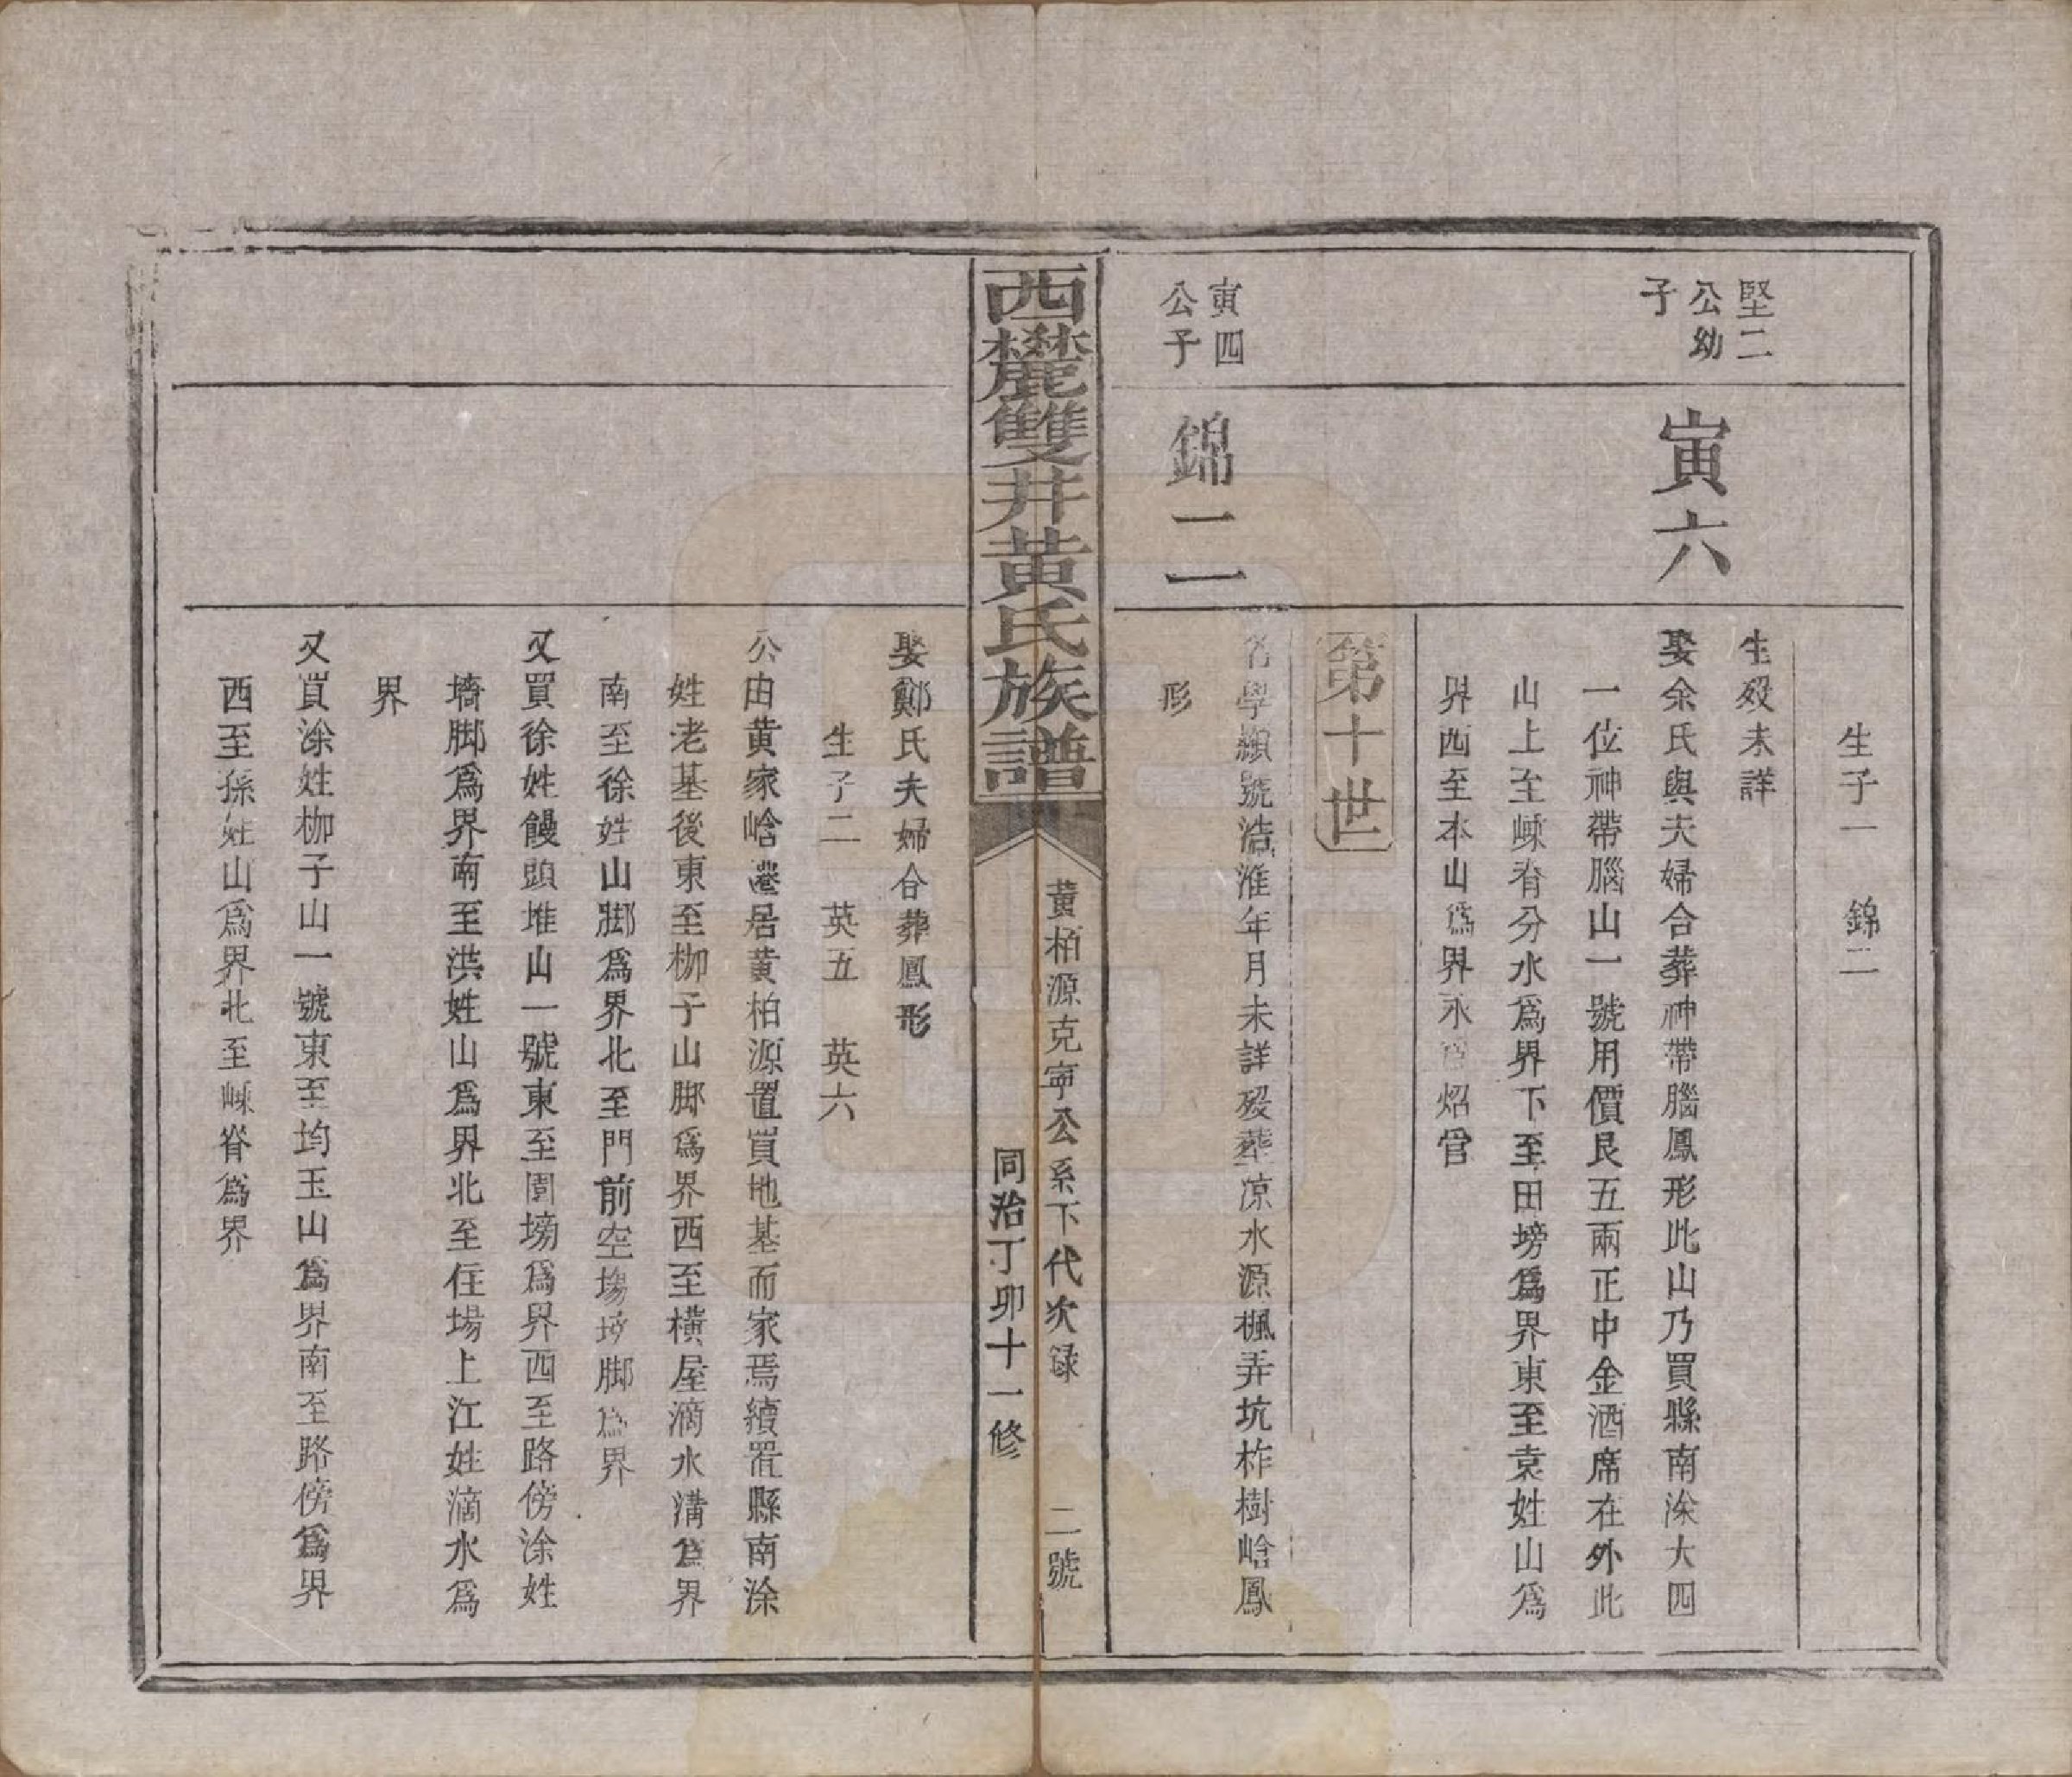 生子一　錦二
堅二
公幼
子
寅六
生歿未詳
娶余氏與夫婦合葬神帶腦鳳形此山乃買縣南涂大四
一位神帶腦山一號用價艮五兩正中金酒席在外此
山上至㟃脊分水爲界下至田塝爲界東至袁姓山爲
界西至本山爲界永炤管
第十世
寅四
公子
錦二
名學顯號浩淮年月未詳歿葬凉水源楓弄坑柞樹峆鳳
形
西麓雙井黃氏族譜
黃栢源克寧公系下代次録　二號
同治丁卯十一修
娶鄭氏夫婦合葬鳳形
生子二　英五　英六
公由黄家峆遷居黄柏源置買地基而家焉續置縣南涂
姓老基後東至枷子山脚爲界西至橫屋滴水溝爲界
南至徐姓山脚爲界北至門前空塲塝脚爲界
又買徐姓饅頭堆山一號東至園塝爲界西至路傍涂姓
墻脚爲界南至洪姓山爲界北至住場上江姓滴水爲
界
又買涂姓枷子山一號東至均玉山爲界南至路傍爲界
西至孫姓山爲界北至㟃脊爲界